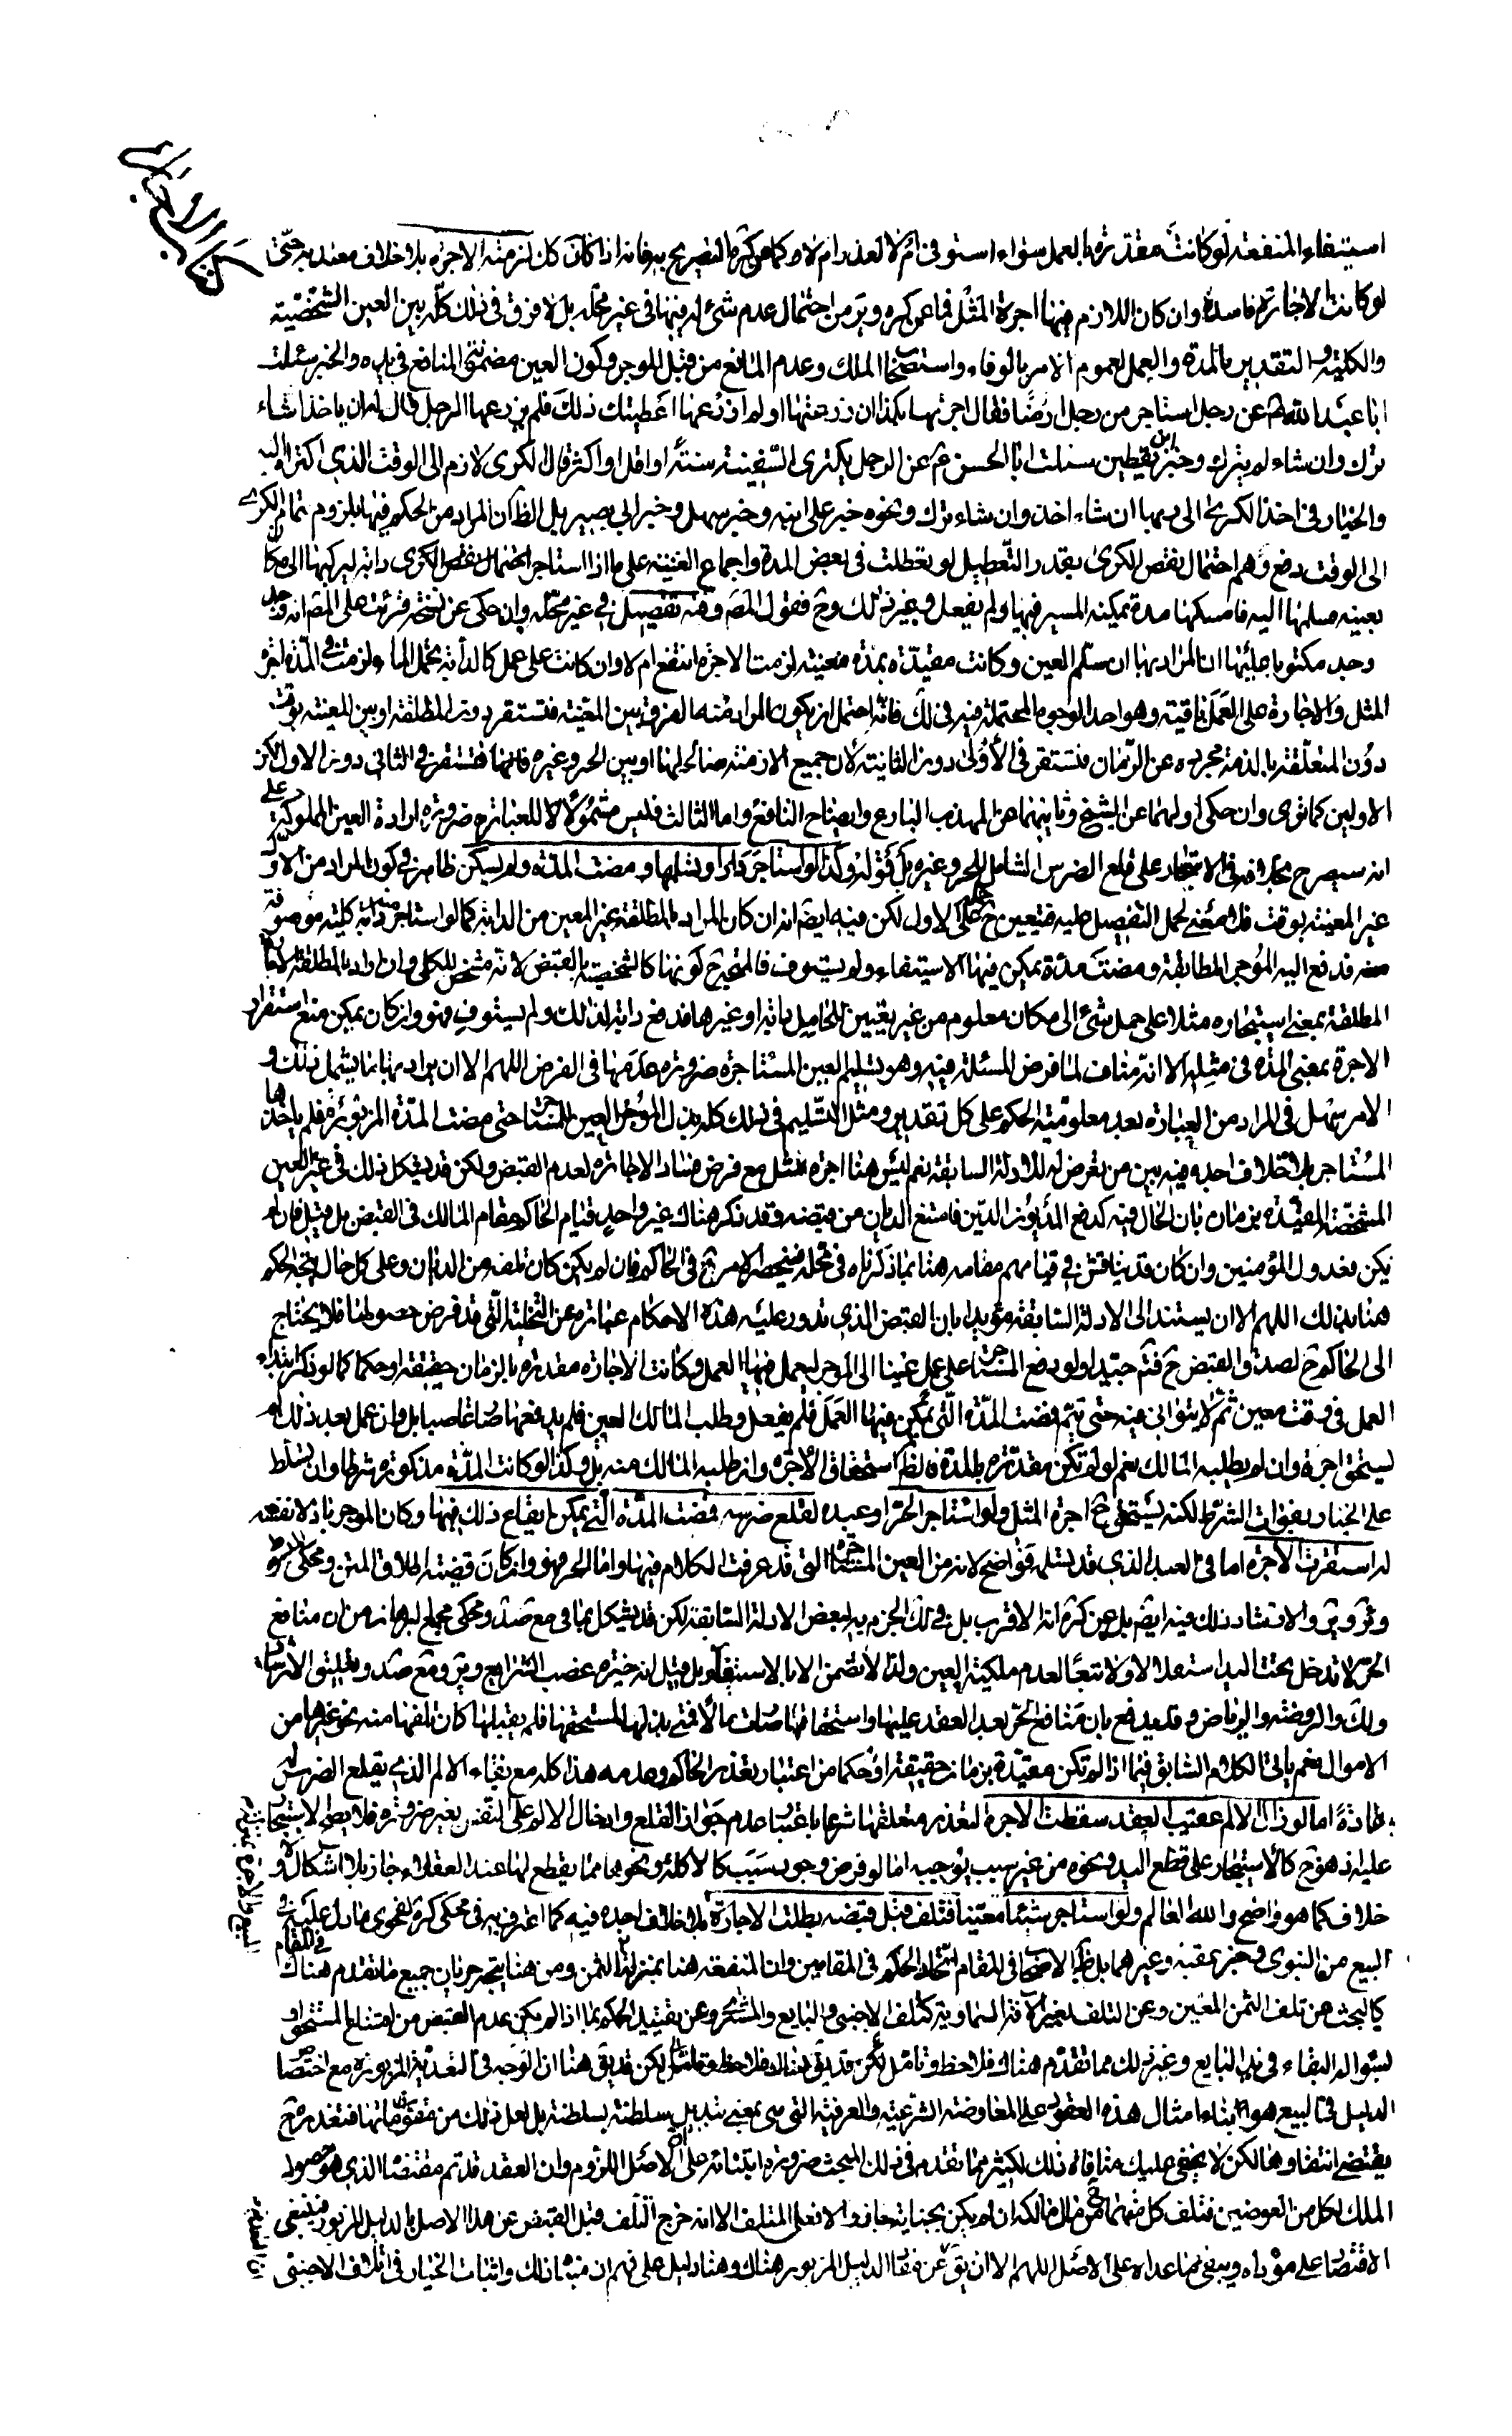 كتاب الاجارة
استيفاء المنفعة لو كانت مقدرة بالعمل سواء استوفى ام لا لعذر ام لا كما عن كثير التصريح به فانه اذا كان كل لزمته الاجرة بلا خلاف معتد به حتى
لو كانت الاجارة فاسدة وان كان اللازم فيها اجرة المثل فما عن كره وير من احتمال عدم شئ له فيها في غير محله بل لا فرق في ذلك كله بين العين الشخصية
والكلية والتقدير بالمدة والعمل لعموم الامر بالوفاء واستصحاب الملك وعدم المانع من قبل الموجر وكون العين مضمنتي المنافع في يده والخبر سئلت
ابا عبد الله عن رجل استاجر من رجل ارضا فقال اجرتها بكذا ان زرعتها او لم ازرعها اعطيتك ذلك فلم يزرعها الرجل قال له ان ياخذ ان شاء
ترك وان شاء لم يترك وخبر ابن يقطين سئلت ابا الحسن ع عن الرجل يكترى السفينة سنة او اقل او اكثر قال الكرى لازم الى الوقت الذي اكتراه اليه
والخيار في اخذ الكرى الى ربها ان شاء اخذ وان شاء ترك ونحوه خبر على ابنه وخبر سهل وخبر ابي بصير بل الظ ان المراد من الحكم فيها بلزوم تمام الكرى
الى الوقت دفع وهم احتمال نقص الكرى بقدر التعطيل لو تعطلت في بعض المدة واجماع الغنية على ما اذا استاجر دابة ليركبها الى مكان
بعينه فسلمها اليه فامسكها مدة يمكنه المسير فيها ولم يفعل وغير ذلك وح فقول المصَ وفيه تفصيل في غير محله وان حكى عن نسخة قرئت على المصَ انه وجد
وجد مكتوبا عليها ان المراد بها ان سلم العين وكانت مقيدة بمدة معينة لزمت الاجرة انتفع ام لا وان كانت على عمل كالدابة تحمل الماء ولزمت في المدة اجرة
المثل والاجارة على العمل باقية وهو احد الوجوه المحتملة فيه في لك فانه احتمل ان يكون المراد منه الفرق بين المعينة فتستقر دون المطلقة او بين المعينة بوقت
دون المتعلقة بالذمة مجردة عن الزمان فتستقر في الاولى دون الثانية لان جميع الازمنة صالح لها او بين الحر وغيره فانها تستقر في الثاني دون الاول لكن
الاولين كما ترى وان حكى اولهما عن الشيخ وثانيهما عن المهذب البارع وايضاح النافع واما الثالث فليس مشمولا للعبارة ضرورة ارادة العين المملوكة على
انه سيصرح بخلافه في الاستيجار على قلع الضرس الشامل للحر وغيره بل قوله وكذا لو استاجر دارا وتسلمها ومضت المدة ولم يسكن ظاهر في كون المراد من الاول
غير المعينة بوقت فلا معنى لحمل التفصيل عليه فتعين ح حمله على الاول لكن فيه ايضَ انه ان كان المراد بالمطلقة غير المعين من الدابة كما لو استاجر منه دابة كلية موصوفة
فدفع اليه الموجر المطابقة ومضت مدة يمكن فيها الاستيفاء ولم يستوف فالمتجه ح كونها كالشخصية بالقبض لانه مشخص للكلى وان اراد بالمطلقة
المطلقة بمعنى استيجاره مثلا على حمل شئ الى مكان معلوم من غير تعيين للحامل بدابة او غيرها فدفع دابة لذلك ولم يستوف فهو وان كان يمكن منع استقرار
الاجرة بمعنى المدة في مثله الا انه مناف لما فرض المسئلة فيه وهو تسليم العين المستاجرة ضرورة عدمها في الفرض اللهم الا ان يراد بها ما يشمل ذلك و
الامر سهل في المراد من العبارة بعد معلومية الحكم على كل تقدير ومثل التسليم في ذلك كله بذل الموجر العين للمستاجر حتى مضت المدة المزبورة فلم ياخذها
المستاجر بلا خلاف اجده فيه بين من تعرض له للادلة السابقة نعم ليس هنا اجرة مثل مع فرض فساد الاجارة لعدم القبض ولكن قد يشكل ذلك في غير العين
المشخصة المقيدة بزمان بان الحال فيه كدفع المديون الدين فامتنع الديان من قبضه وقد ذكر هناك غير واحد قيام الحاكم مقام المالك في القبض بل قيل فان لم
يكن فعدول المؤمنين وان كان قد يناقش في قيامهم مقامه هنا بما ذكرناه في محله فينحصر الامر ح في الحاكم فان لم يكن كان تلفه من الديان وعلى كل حال يتجه الحكم
هنا بذلك اللهم الا ان يستند الى الادلة السابقة مؤيدا بان القبض الذي تدور عليه هذه الاحكام عبارة عن التخلية التي قد فرض حصولها فلا يحتاج
الى الحاكم ح لصدق القبض ح فتم جيدا ولو دفع المستاجر على عمل عينا الى الموجر ليعمل فيها العمل وكانت الاجارة مقدرة بالزمان حقيقة او حكما كما لو ذكر ابتداء
العمل في وقت معين ثم لا يتوانى فيه حتى تتم فمضت المدة التي يمكن فيها العمل فلم يفعل وطلب المالك العين فلم يدفعها صار غاصبا بل وان عمل بعد ذلك لم
يستحق اجرة وان لم يطلبه المالك نعم لو لم تكن مقدرة بالمدة فالظ استحقاق الاجرة وان طلبه المالك منه بل وكذا لو كانت المدة مذكورة شرطا وان تسلط
على الخيار بفوات الشرط لكنه يستحق ح اجرة المثل ولو استاجر الحر او عبده لقلع ضرسه فمضت المدة التي يمكن ايقاع ذلك فيها وكان الموجر باذلا نفسه
له استقرت الاجرة اما في العبد الذي قد تسلمه فواضح لانه من العين المستاجرة التي قد عرفت الكلام فيها واما الحر فهو وان كان قضية اطلاق المتن ومحكى
وير والارشاد ذلك فيه ايضَ بل عن كره انه الاقرب بل في لك الجزم به لبعض الادلة السابقة لكن قد يشكل بما في مع صد ومحكى مجمع البرهان من ان منافع
الحر لا تدخل تحت اليد استعدالا ولا تبعا لعدم ملكية العين ولذا لا تضمن الا بالاستيفاء بل قيل انه خيرة غصب الشرايع وير ومع صد وتعليق الارشاد
ولك والروضة والرياض وقد يدفع بان منافع الحر بعد العقد عليها واستحقاقها صارت مالا فمتى بذلها لمستحقها فلم يقبلها كان تلفها منه نحو غيرها من
الاموال نعم ياتي الكلام السابق فيما اذا لم تكن مقيدة بزمان حقيقة او حكما من اعتبار تعذر الحاكم وعدمه هذا كله مع بقاء الالم الذي يقلع الضرس له
عادة اما لو زال الالم عقيب العقد سقطت الاجرة لتعذر متعلقها شرعا باعتبار عدم جواز القلع وادخال الالم على النفس بغير ضرورة فلا يصح الاستيجار
عليه اذ هو ح كالاستيجار على قطع اليد ونحوه من غير سبب يوجبه اما لو فرض وجود سبب كالاكلة ونحوها مما يقطع لها عند العقلاء جاز بلا اشكال ولا
خلاف كما هو واضح والله العالم ولو استاجر شيئا معينا فتلف قبل قبضه بطلت الاجارة بلا خلاف اجده فيه كما اعترف به في محكى كره لفحوى ما دل عليه في
البيع من النبوى وخبر عقبة وغيرهما بل ظ الاصحاب في المقام اتحاد الحكم في المقامين وان المنفعة هنا بمنزلة الثمن ومن هنا يتجه جريان جميع ما تقدم هناك في المقام
كالبحث عن تلف الثمن المعين وعن التلف بغير الافة السماوية كتلف الاجنبى والبايع والمشترى وعن تقييد الحكم بما اذا لم يكن عدم القبض من امتناع المستحق او
لسؤاله البقاء في يد البايع وغير ذلك مما تقدم هناك فلاحظ وتامل لكن قد يقَ هنا ان الوجه في التعدية المزبورة مع اختصاص
الدليل في البيع هو بناء امثال هذه العقود على المعاوضة الشرعية والعرفية التي هى بمعنى تبديل سلطنة بسلطنة بل لعل ذلك من مقوماتها فتعذره ح
يقتضى انتفاءها لكن لا يخفى عليك منافاة ذلك لكثير مما تقدم في ذلك المبحث ضرورة ابتنائه على ان الاصل اللزوم وان العقد قد تم مقتضاه الذي هو حصول
الملك لكل من العوضين فتلف كل منهما ح من مال مالكه ان لم يكن بجناية جان والا فعلى المتلف الا انه خرج التلف قبل القبض عن هذا الاصل بالدليل المزبور فينبغى
الاقتصار على مؤداه ويبقى ما عداه على الاصل اللهم الا ان يقَ عن الدليل المزبور هناك وهنا دليل على فهم ان مبناه ذلك واثبات الخيار في اتلاف الاجنبى